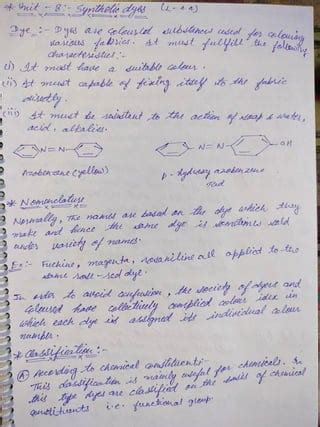 * Unit - 8:- Synthetic dyes
Dye :- Dyes are coloured substances used for colouring
various fabrics. It must fulfill the following
characteristics:-
(i) It must have a suitable colour.
(ii) It must capable of fixing itself to the fabric
directly.
(iii) It must be resistant to the action of soap & water,
acid, alkalies.
N=N
N=N
OH
Azobenzene (yellow)
p-hydroxy azobenzene
Red
* Nomenclature
Normally, The names are based on the dye which they
make and hence the same dye is sometimes sold
under variety of names.
Ex:- Fuchine, magenta, rosaniline all applied to the
same rose-red dye.
In order to avoid confusion, the society of dyers and
coloured have collectively complied colour idex in
which each dye is assigned its individual colour
number.
* Classification:-
(A) According to chemical constituents:-
This classification is mainly useful for chemicals. In
this type dyes are classified on the basis of chemical
constituents i.e. functional group.